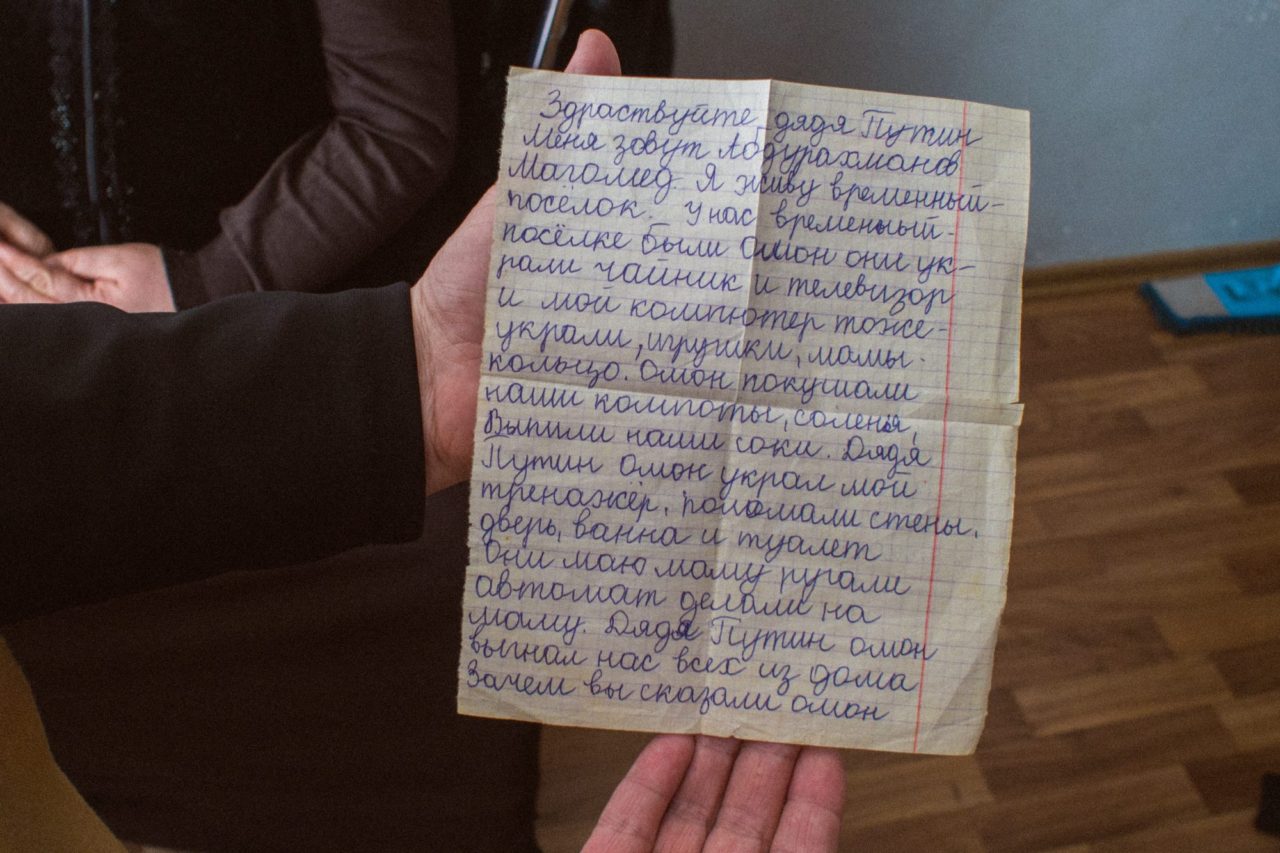 Здраствуйте дядя Путин
Меня зовут Абдурахманов
Магомед. Я живу временный-
посёлок. У нас временыый-
посёлке были омон они ук-
рали чайник и телевизор
и мой компютер тоже-
украли, игрушки, мамы-
кольцо. Омон покушали
наши компоты, соленья,
Выпили наши соки. Дядя
Путин омон украл мой
тренажёр, поломали стены,
дверь, ванна и туалет
Они маю маму ругали
автомат делали на
маму. Дядя Путин омон
выгнал нас всех из дома
Зачем вы сказали омон